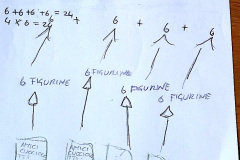 6+6+6+6,=24
4 x 6 = 24
6 + 6 + 6 + 6
6 FIGURINE 6 FIGURINE 6 FIGURINE 6 FIGURINE
AMICI AMICI